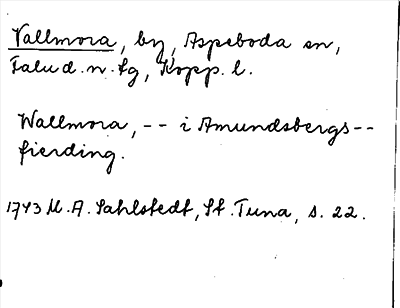 Vallmora, by, Aspeboda sn,
Falu d. n. tg, Kopp. l.
Wallmora, -- i Amundsbergs--
fierding.
1743 M. A. Sahlstedt, St. Tuna, s. 22.